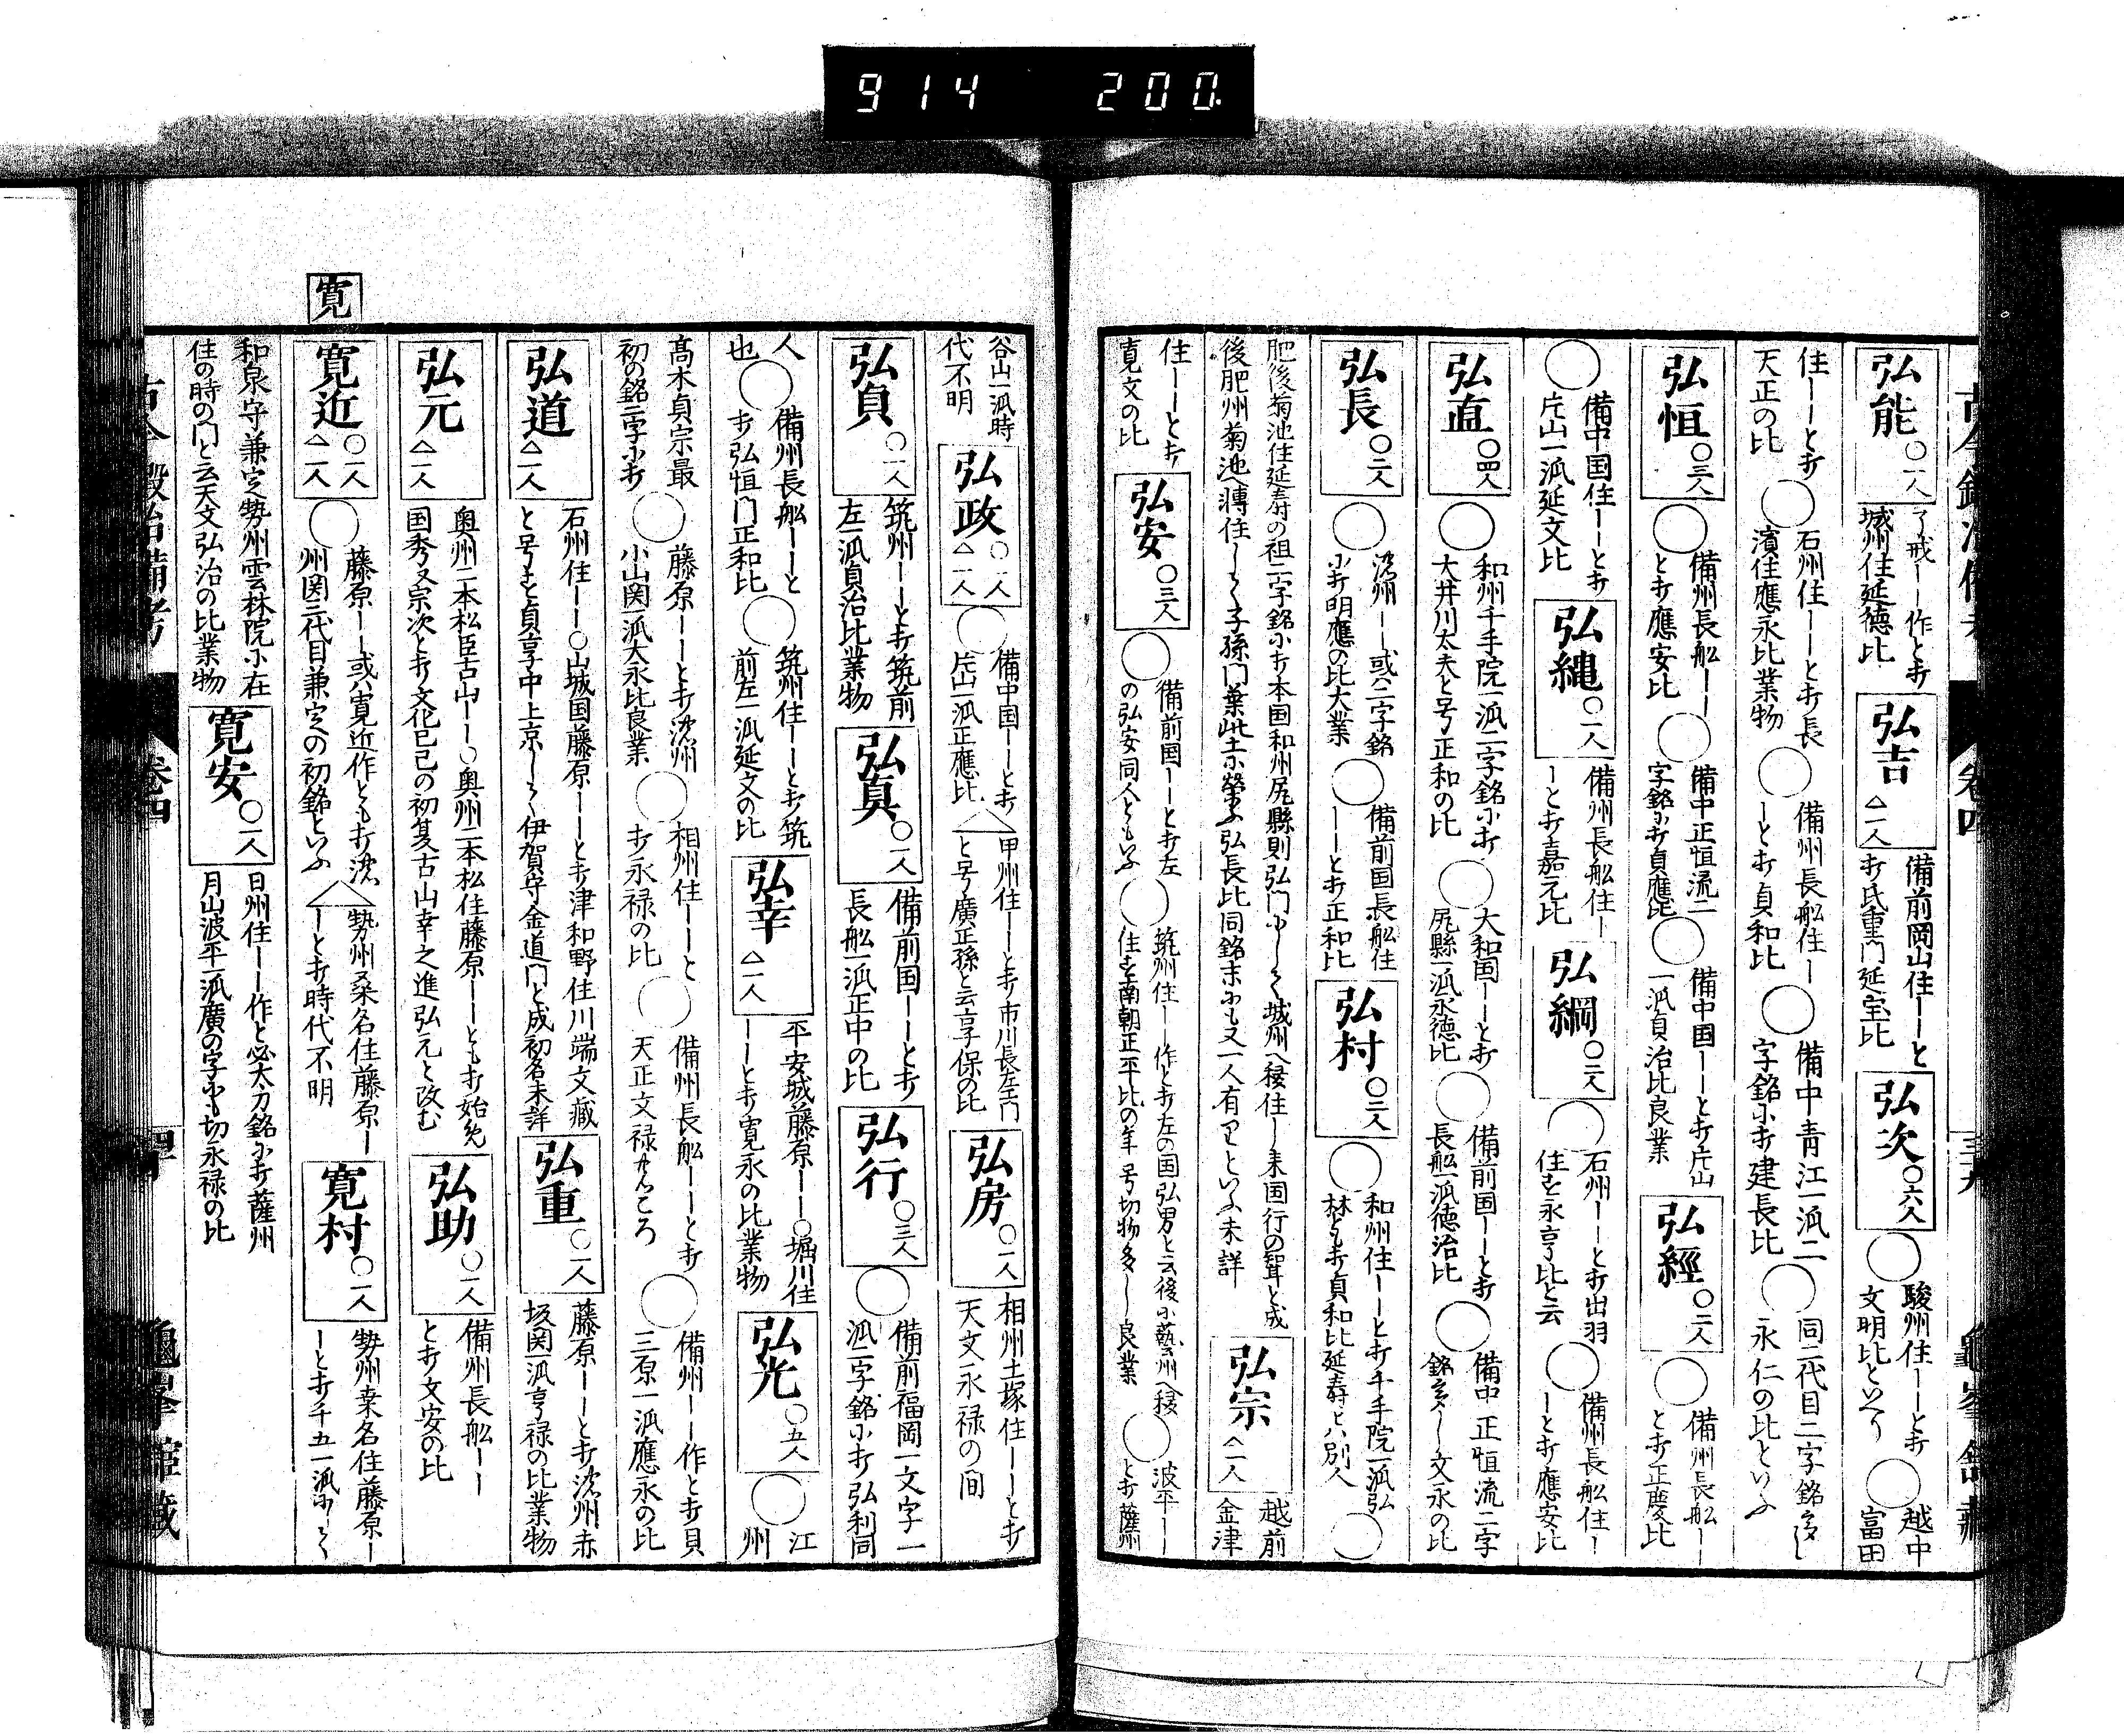 914 200
弘能 ○一人
了戒ー作とㇹ
城州住延徳比
弘吉 △一人
備前岡山住ーーと
ㇹ氏重門延宝比
弘次 ○六人
○駿州住ーーとㇹ
文明比といへり
○越中
富田
住ーーとㇹ
天正の比
○石州住ーーとㇹ長
濱住應永比業物
○備州長舩住ー
ーとㇹ貞和比
○備中青江一泒二
字銘小ㇹ建長比
○同二代目二字銘多し
永仁の比といふ
弘恒 ○三人
○備州長舩ーー
とㇹ應安比
○備中正恒流二
字銘小ㇹ貞應比
○備中国ーーとㇹ片山
一泒貞治比良業
弘經 ○二人
○備州長舩ーー
とㇹ正慶比
○備中国住ーーとㇹ
片山一泒延文比
弘縄 ○一人
備州長舩住ー
ーとㇹ嘉元比
弘綱 ○二人
○石州ーーとㇹ出羽
住を永亨比と云
○備州長舩住ー
ーとㇹ應安比
弘直 ○四人
○和州千手院一泒二字銘小ㇹ
大井川太夫と号正和の比
○大和国ーーとㇹ
尻縣一泒永徳比
○備前国ーーとㇹ
長舩一泒徳治比
○備中正恒流二字
銘多し文永の比
弘長 ○二人
○濃州ーー或ハ二字銘
小ㇹ明應の比大業
○備前国長舩住
ーーとㇹ正和比
弘村 ○二人
○和州住ーーとㇹ千手院一泒弘
林ともㇹ貞和比延寿とハ別人
○肥後菊池住延寿の祖二字銘小ㇹ本国和州尻縣則弘門小しく城州へ移住し来国行の聟と成
後肥州菊池へ轉住しく子孫門葉此土小榮ふ弘長比同銘末小も又一人有りといふ未詳
弘宗 △一人
越前
金津
住ーーとㇹ
寛文の比
弘安 ○三人
○備前国ーーとㇹ左
の弘安同人ともいふ
○筑州住ーー作とㇹ左の国弘男と云後小藝州へ移
住を南朝正平比の年号切物多し良業
○波平ーー
とㇹ薩州
谷山一泒時
代不明
弘政 ○一人 △一人
○備中国ーーとㇹ
片山一泒正應比
△甲州住ーーとㇹ市川長左ヱ門
と号廣正孫と云享保の比
弘房 ○一人
相州土塚住ーーとㇹ
天文永禄の間
弘貞 ○一人
筑州ーーとㇹ筑前
左一泒貞治比業物
弘真 ○一人
備前国ーーとㇹ
長舩一泒正中の比
弘行 ○三人
○備前福岡一文字一
泒二字銘小ㇹ弘利同
人
也
○備州長舩ーーと
ㇹ弘恒門正和比
○筑州住ーーとㇹ筑
前左一泒延文の比
弘幸 △一人
平安城藤原ーー○堀川住
ーーとㇹ寛永の比業物
弘光 ○五人
○江
州
高木貞宗最
初の銘二字小ㇹ
○藤原ーーとㇹ濃州
小山関一泒大永比良業
○相州住ーーと
ㇹ永禄の比
○備州長舩ーーとㇹ
天正文禄ころ
○備州ーー作とㇹ貝
三原一泒應永の比
弘道 △一人
石州住ーー○山城国藤原ーーとㇹ津和野住川端文蔵
と号を貞享中上京しく伊賀守金道門と成初名未詳
弘重 ○一人
藤原ーーとㇹ濃州赤
坂関一泒亨禄の比業物
弘元 △一人
奥州二本松臣古山ーー○奥州二本松住藤原ーーともㇹ始光
国秀又宗次とㇹ文化己巳の初复古山幸之進弘元と改む
弘助 ○一人
備州長舩ーー
とㇹ文安の比
寛
寛近 ○一人 △一人
○藤原ーー或ハ寛近作ともㇹ濃
州関三代目兼定の初銘といふ
△勢州桑名住藤原ー
ーとㇹ時代不明
寛村 ○一人
勢州桑名住藤原ー
ーとㇹ千五一泒小しく
和泉守兼定勢州雲林院小在
住の時の門と云天文弘治の比業物
寛安 ○一人
日州住ーー作と必太刀銘小ㇹ薩州
月山波平一泒廣の字小も切永禄の比